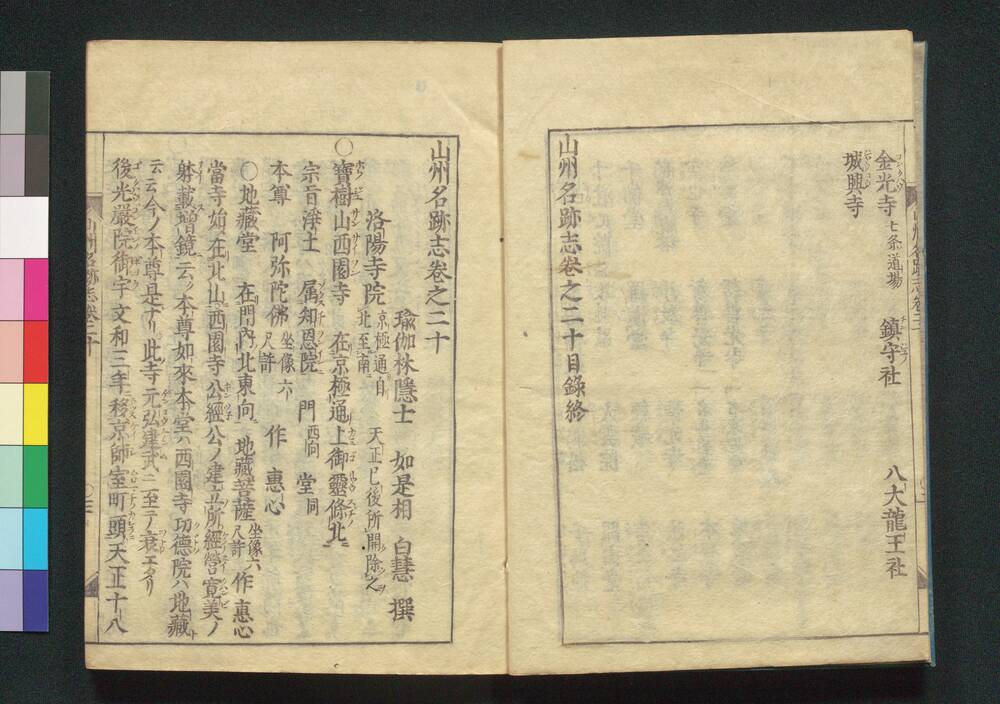 金光寺 七条道場 鎮守社 八大龍王社
城興寺
山州名跡志巻之二十目録終
山州名跡志巻之二十
瑜伽林隠士 如是相 白慧 撰
洛陽寺院 京極通自北至南 天正已後所開除之
〇寶樹山西園寺 在京極通上御靈條北
宗旨浄土 属知恩院 門西向 堂同
本尊 阿弥陀佛 坐像六尺許 作 惠心
〇地蔵堂 在門內北東向 地蔵菩薩 坐像六尺許 作惠心
當寺始在北山西園寺公經公ノ建立所經營寛美ノ
躰載増鏡云ク本尊如來本堂ハ西園寺功徳院ハ地蔵
云云今ノ本尊是ナリ此寺元弘建武ニ至テ衰エタリ
後光嚴院御宇文和三年移京師室町頭天正十八